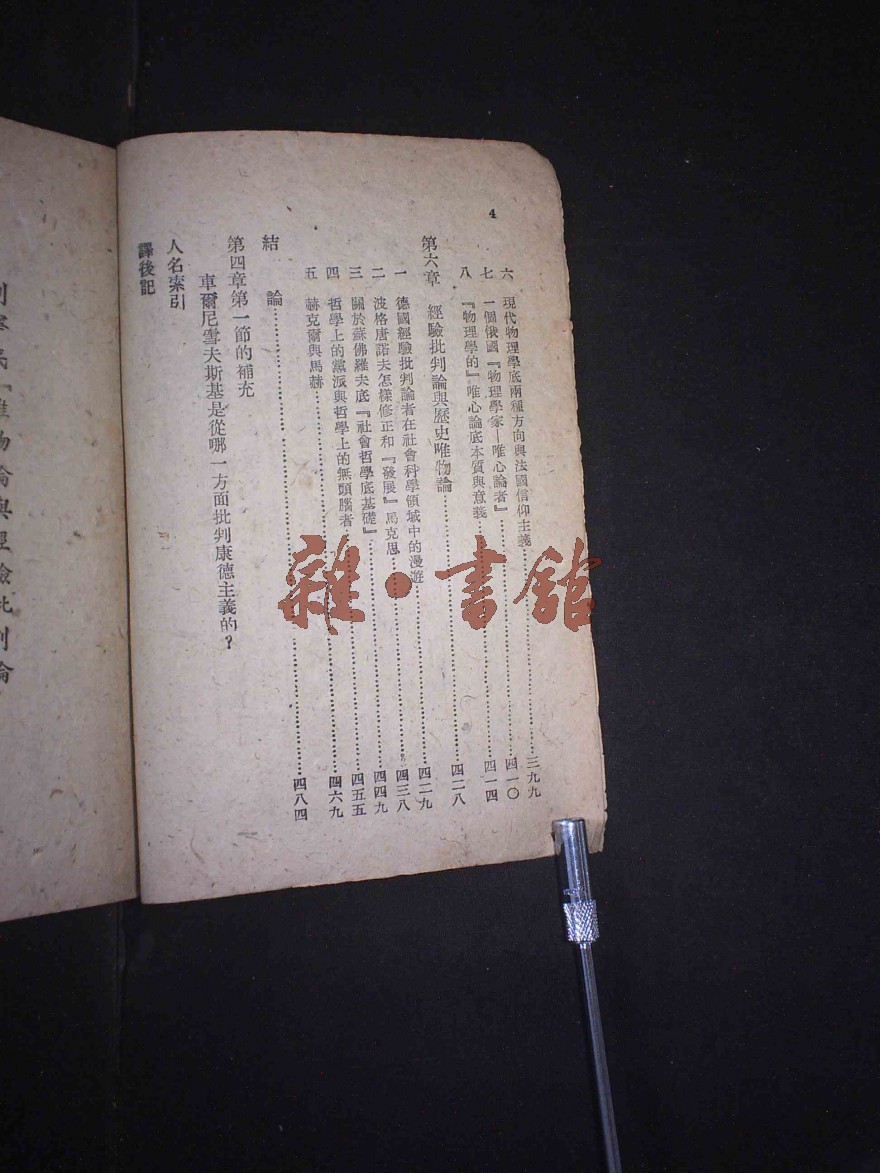 4
六 現代物理學底兩種方向與法國信仰主義……三九九
七 一個俄國『物理學家—唯心論者』……四一〇
八 『物理學的』唯心論底本質與意義……四一四
第六章 經驗批判論與歷史唯物論……四二八
一 德國經驗批判論者在社會科學領域中的漫遊……四二九
二 波格唐諾夫怎樣修正和『發展』馬克思……四三八
三 關於蘇佛羅夫底『社會哲學底基礎』……四四九
四 哲學上的黨派與哲學上的無頭腦者……四五五
五 赫克爾與馬赫……四六九
結 論……四八四
第四章第一節的補充
車爾尼雪夫斯基是從哪一方面批判康德主義的?
人名索引
譯後記
『唯物論與經驗批判論
雜·書館